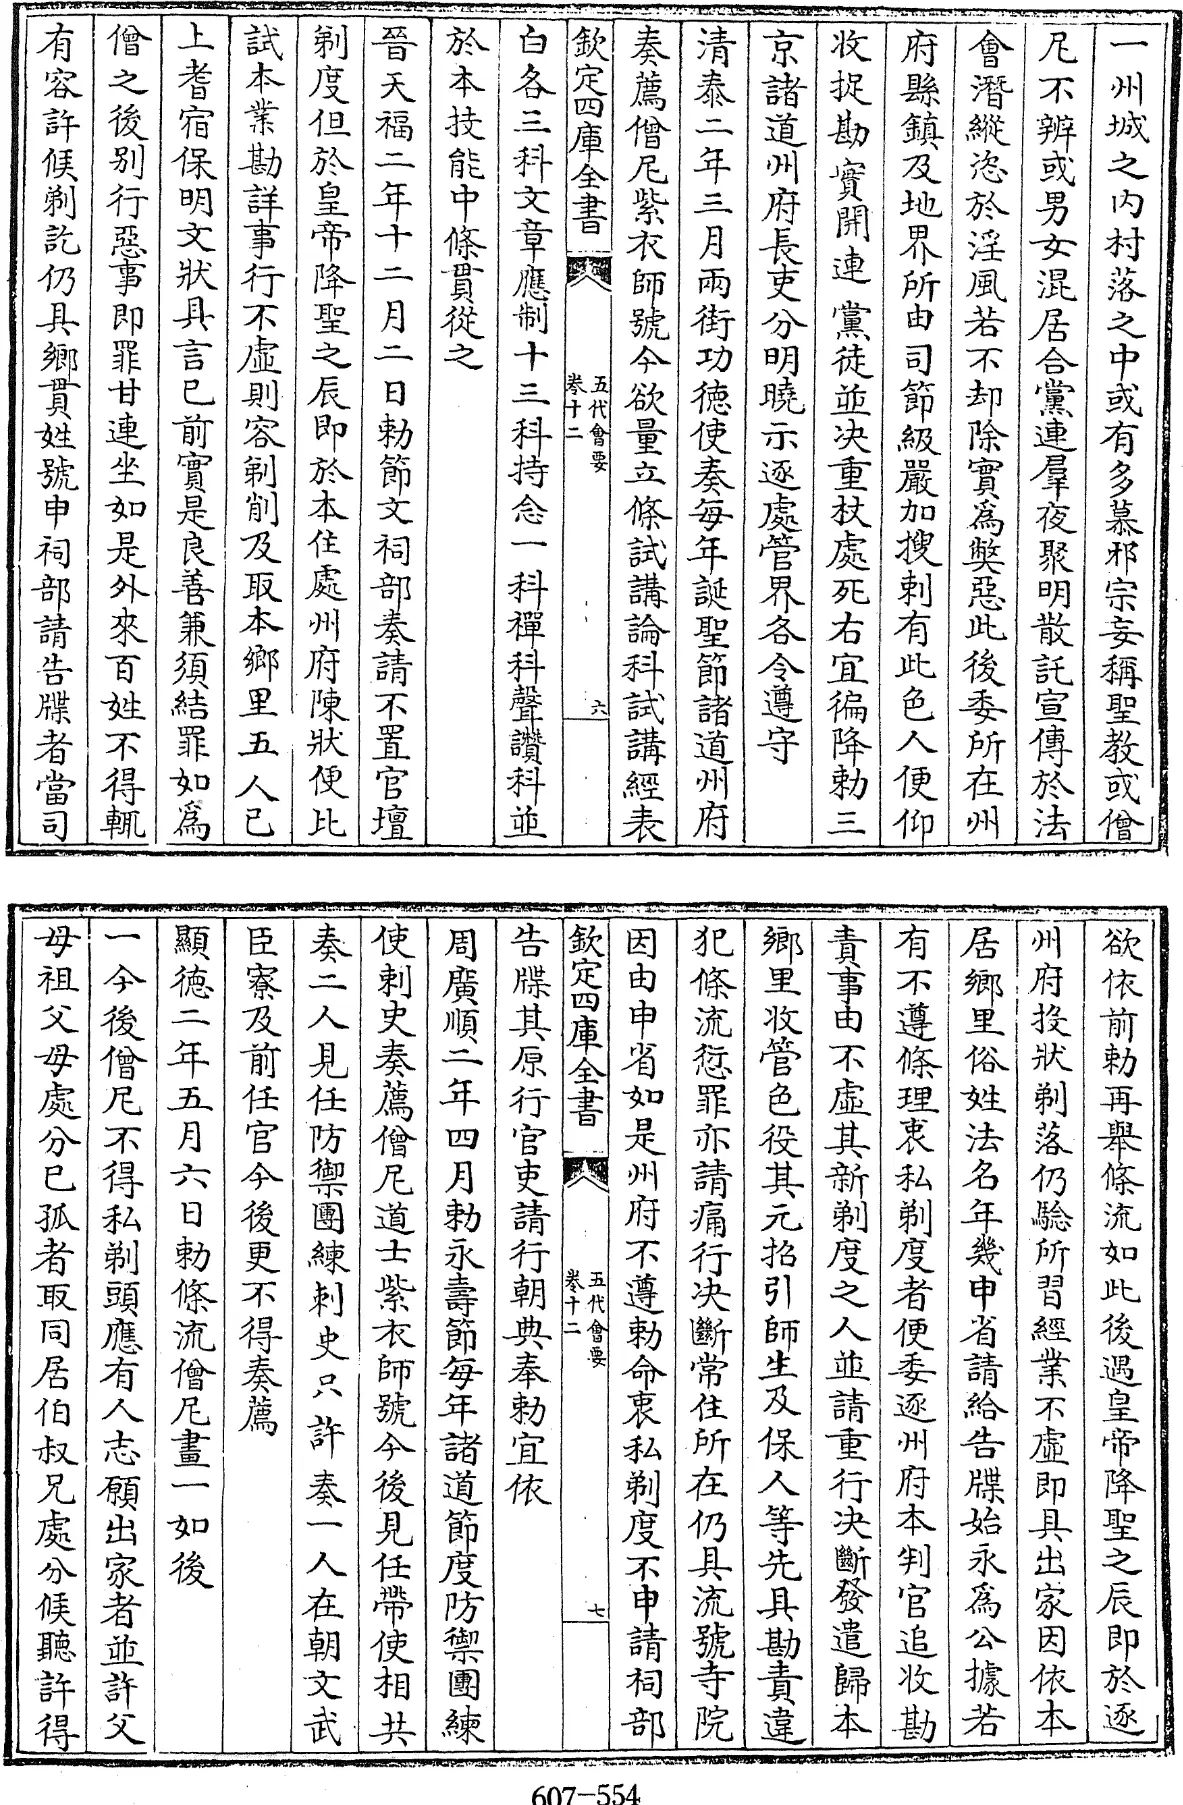 一州城之内村落之中或有多慕邪宗妄稱聖教或僧
尼不辨或男女混居合黨連羣夜聚明散託宣傳於法
會潛縱恣於淫風若不却除實為弊惡此後委所在州
府縣鎮及地界所由司節級嚴加搜刺有此色人便仰
收捉勘實開連黨徒並決重杖處死右宜徧降勅三
京諸道州府長吏分明曉示逐處管界各令遵守
清泰二年三月兩街功德使奏每年誕聖節諸道州府
奏薦僧尼紫衣師號今欲量立條試講論科試講經表
欽定四庫全書
五代會要
卷十二
六
白各三科文章應制十三科持念一科禪科聲讚科並
於本技能中條貫從之
晉天福二年十二月二日勅節文祠部奏請不置官壇
剃度但於皇帝降聖之辰即於本住處州府陳狀便比
試本業勘詳事行不虛則容剃削及取本鄉里五人已
上耆宿保明文狀具言已前實是良善兼須結罪如為
僧之後别行惡事即罪甘連坐如是外來百姓不得輒
有容許候剃訖仍具鄉貫姓號申祠部請告牒者當司
欲依前勅再舉條流如此後遇皇帝降聖之辰即於逐
州府投狀剃落仍驗所習經業不虛即具出家因依本
居鄉里俗姓法名年幾申省請給告牒始永為公據若
有不遵條理衷私剃度者便委逐州府本判官追收勘
責事由不虛其新剃度之人並請重行決斷發遣歸本
鄉里收管色役其元招引師生及保人等先具勘責違
犯條流愆罪亦請痛行決斷常住所在仍具流號寺院
因由申省如是州府不遵勅命衷私剃度不申請祠部
欽定四庫全書
五代會要
卷十二
七
告牒其原行官吏請行朝典奉勅宜依
周廣順二年四月勅永壽節每年諸道節度防禦團練
使刺史奏薦僧尼道士紫衣師號今後見任帶使相共
奏二人見任防禦團練刺史只許奏一人在朝文武
臣寮及前任官今後更不得奏薦
顯德二年五月六日勅條流僧尼畫一如後
一今後僧尼不得私剃頭應有人志願出家者並許父
母祖父母處分已孤者取同居伯叔兄處分候聽許得
607-554